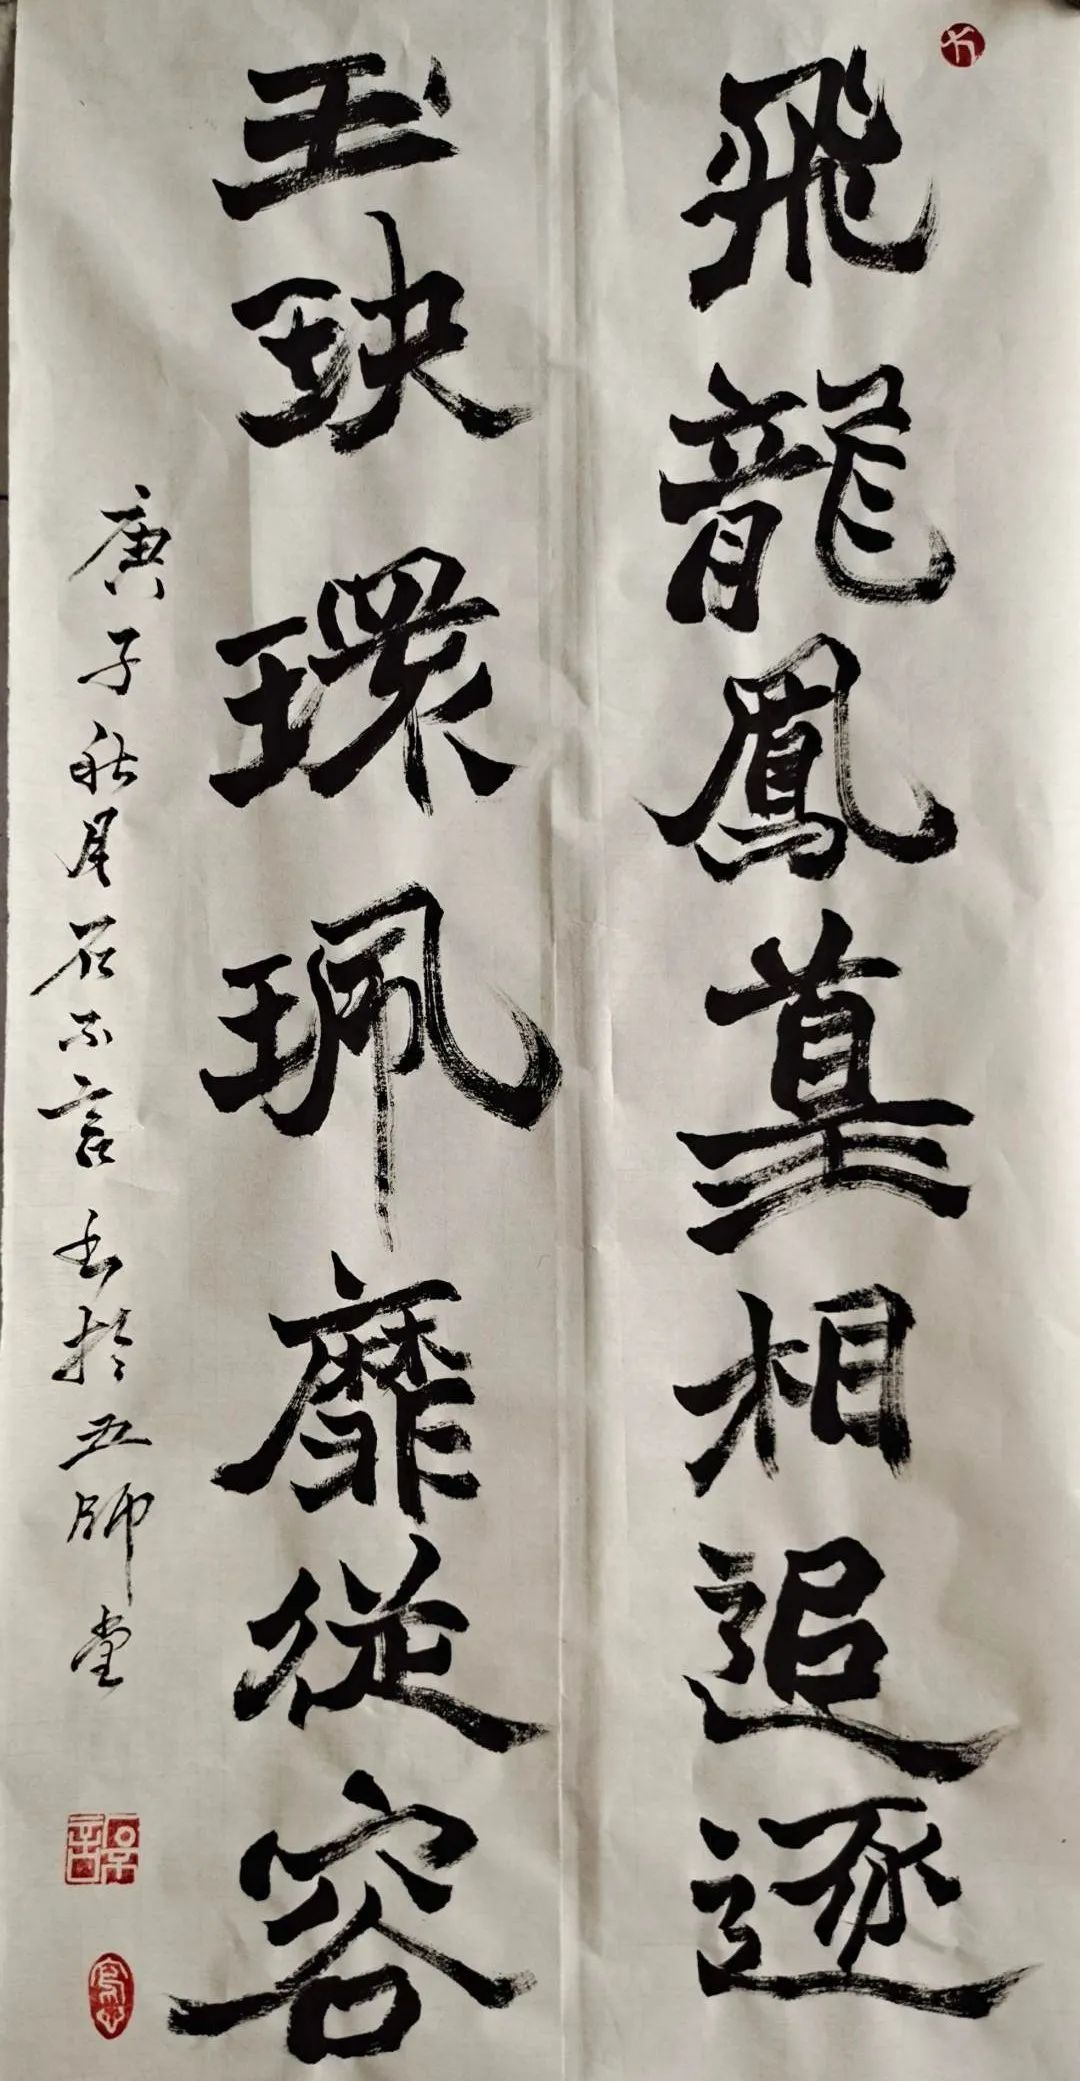 飛龍鳳相追逐
玉玦環珮靡從容
庚子秋月石不言书於五師堂